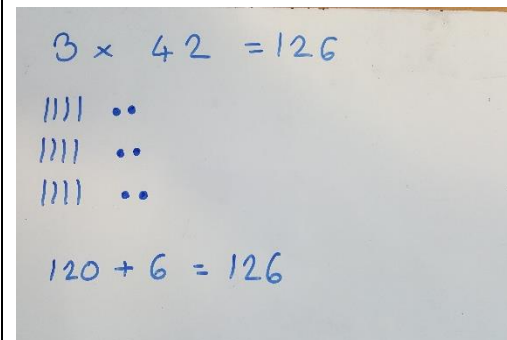 3 × 42 = 126
|||| ••
|||| ••
|||| ••
120 + 6 = 126